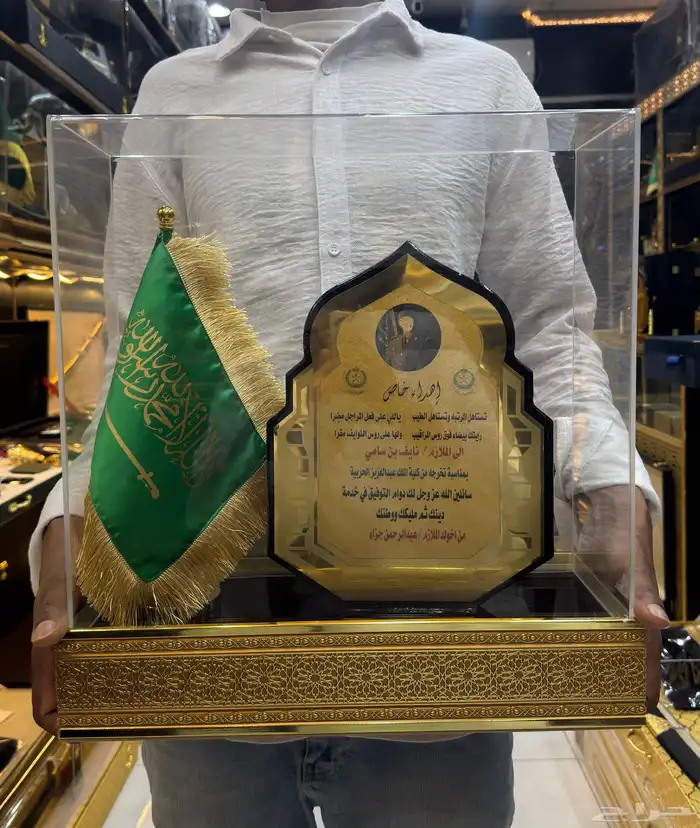 لا إله إلا الله محمد رسول الله
إهداء خاص
تستاهل الرتبه وتستاهل الطيب ياللي على فعل المراجل مجبرا
رايتك بيضاء فوق روس المراقيب ولها على روس النوايف مقرا
الى الملازم / نايف بن سامي
بمناسبة تخرجه من كلية الملك عبدالعزيز الحربية
سائلين الله عز وجل لك دوام التوفيق في خدمة
دينك ثم مليكك ووطنك
من اخوك الملازم / عبدالرحمن جزاء
حراج